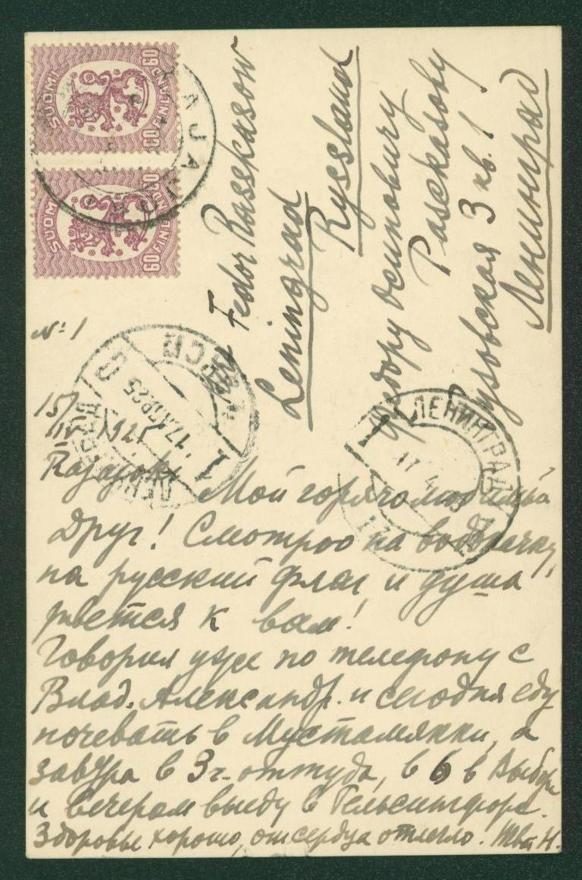 SUOMI
60
60
SUOMI
60
60
RAJAJOKI
Fedor Rasskasow
Leningrad
Russland
Федору Осиповичу
Рассказову
Рузовская 3 кв. 1
Ленинград
№ 1
15/
Rajajoki
ЛЕНИНГРАД
17
1
ЛЕНИНГРАД
Мой горячолюбимый
Друг! Смотрю на водокачку,
на русский флаг и душа
рвется к вам!
Говорил уже по телефону с
Влад. Александр. и сегодня еду
ночевать в Мустамякки, а
завтра в 3 г. оттуда, в 6 в Выборг
и вечером выеду в Гельсингфорс.
Здоровье хорошо, от сердца отлегло. Твой Н.